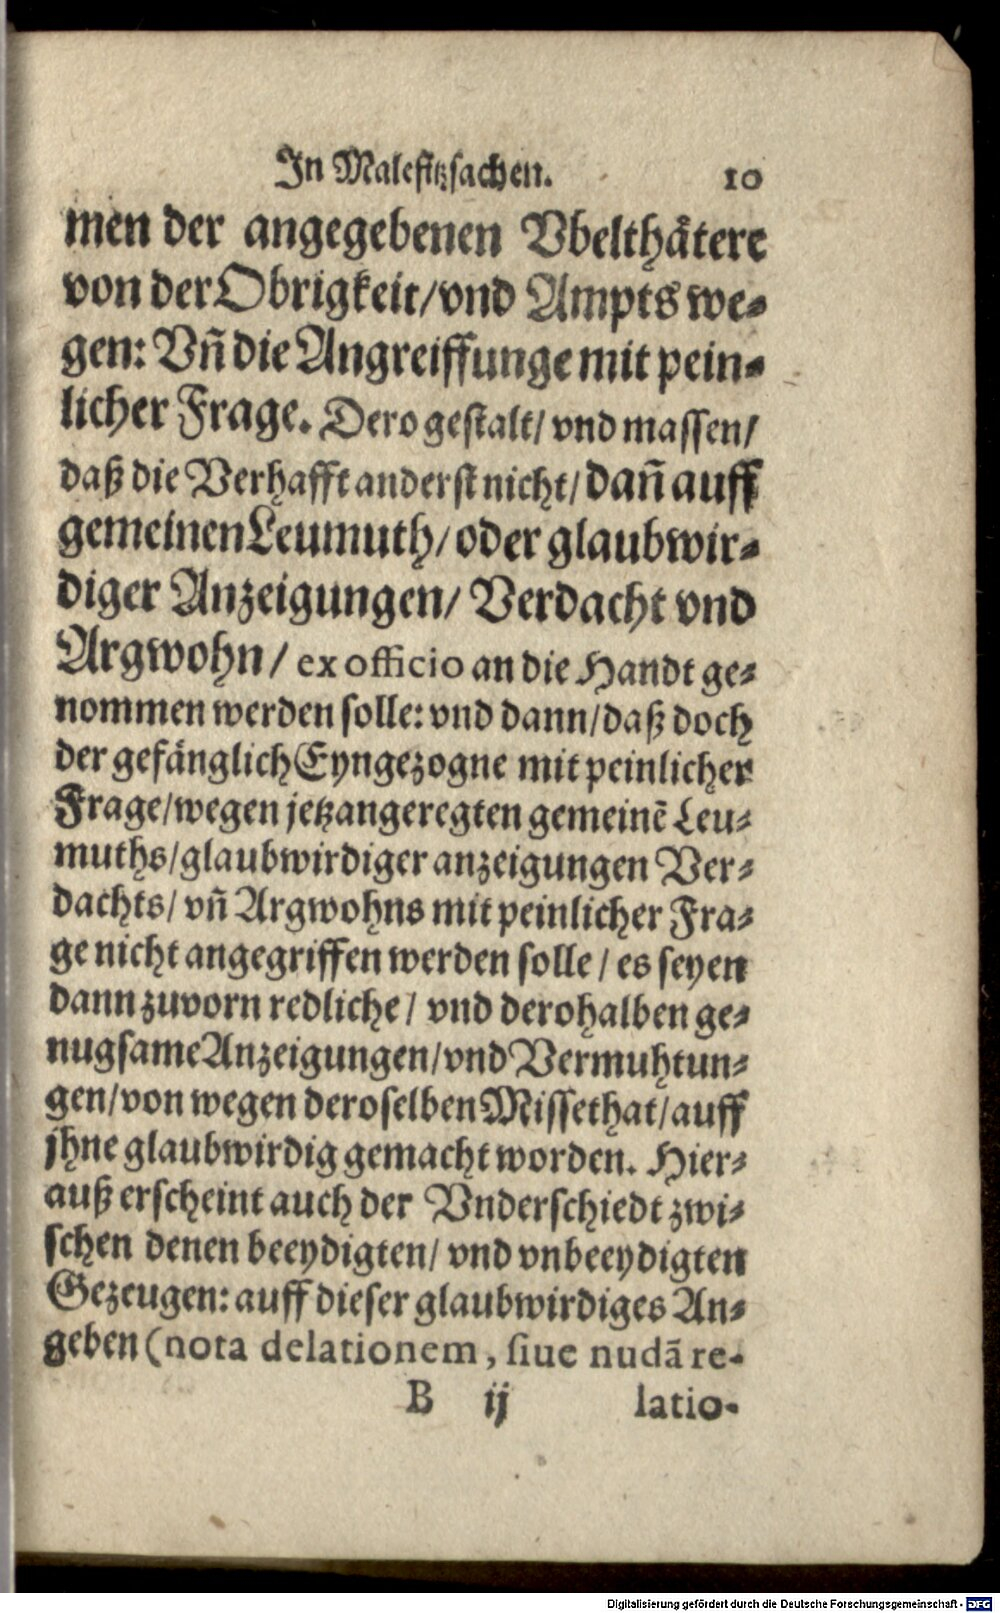 In Malefitzsachen. 10
men der angegebenen Vbelthåtere
von der Obrigkeit/vnd Ampts we-
gen: Vñ die Angreiffunge mit pein-
licher Frage. Dero gestalt/ vnd massen/
daß die Verhafft anderst nicht/ dañ auff
gemeinen Leumuth/ oder glaubwir-
diger Anzeigungen/ Verdacht vnd
Argwohn/ ex officio an die Handt ge-
nommen werden solle: vnd dann/daß doch
der gefånglich Eyngezogne mit peinlicher
Frage/wegen jetzangeregten gemeinē Leu-
muths/glaubwirdiger anzeigungen Ver-
dachts/ vñ Argwohns mit peinlicher Fra-
ge nicht angegriffen werden solle/ es seyen
dann zuvorn redliche/ vnd derohalben ge-
nugsame Anzeigungen/vnd Vermuhtun-
gen/von wegen deroselben Missethat/auff
jhne glaubwirdig gemacht worden. Hier-
auß erscheint auch der Vnderschiedt zwi-
schen denen beeydigten/ vnd vnbeeydigten
Gezeugen: auff dieser glaubwirdiges An-
geben (nota delationem, siue nudã re-
B ij latio-
Digitalisierung gefördert durch die Deutsche Forschungsgemeinschaft - DFG